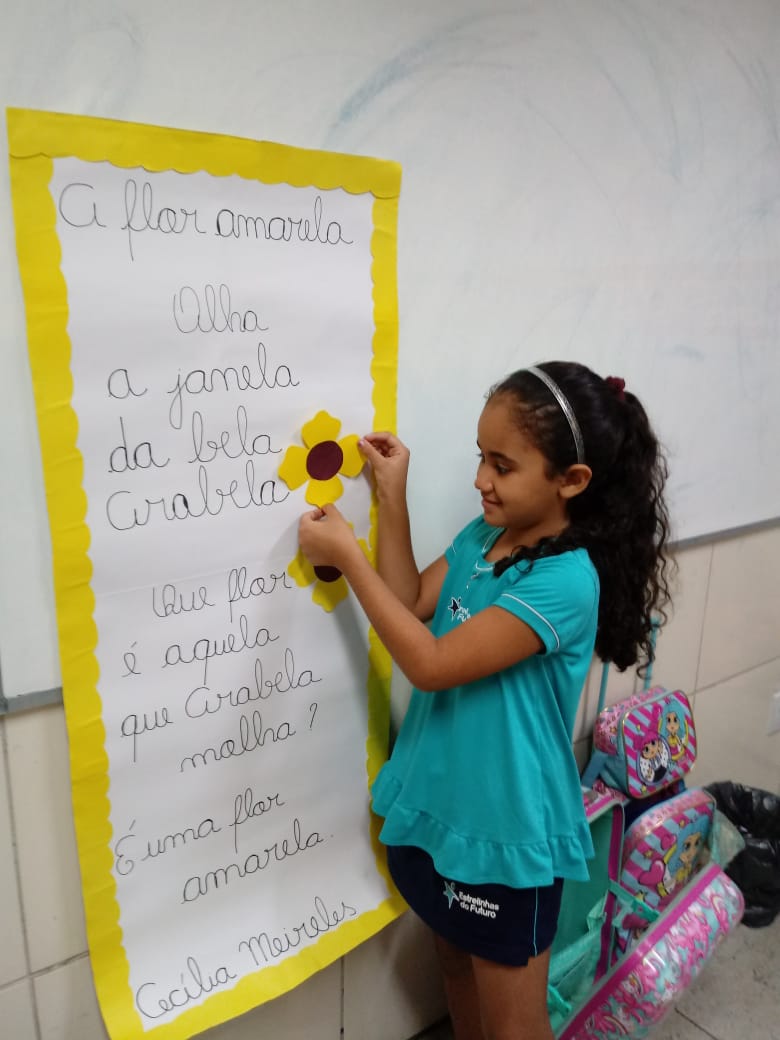 A flor amarela
Olha
a janela
da bela
Arabela
Que flor
é aquela
que Arabela
molha?
É uma flor
amarela.
Cecília Meireles
Estrelinhas
do Futuro